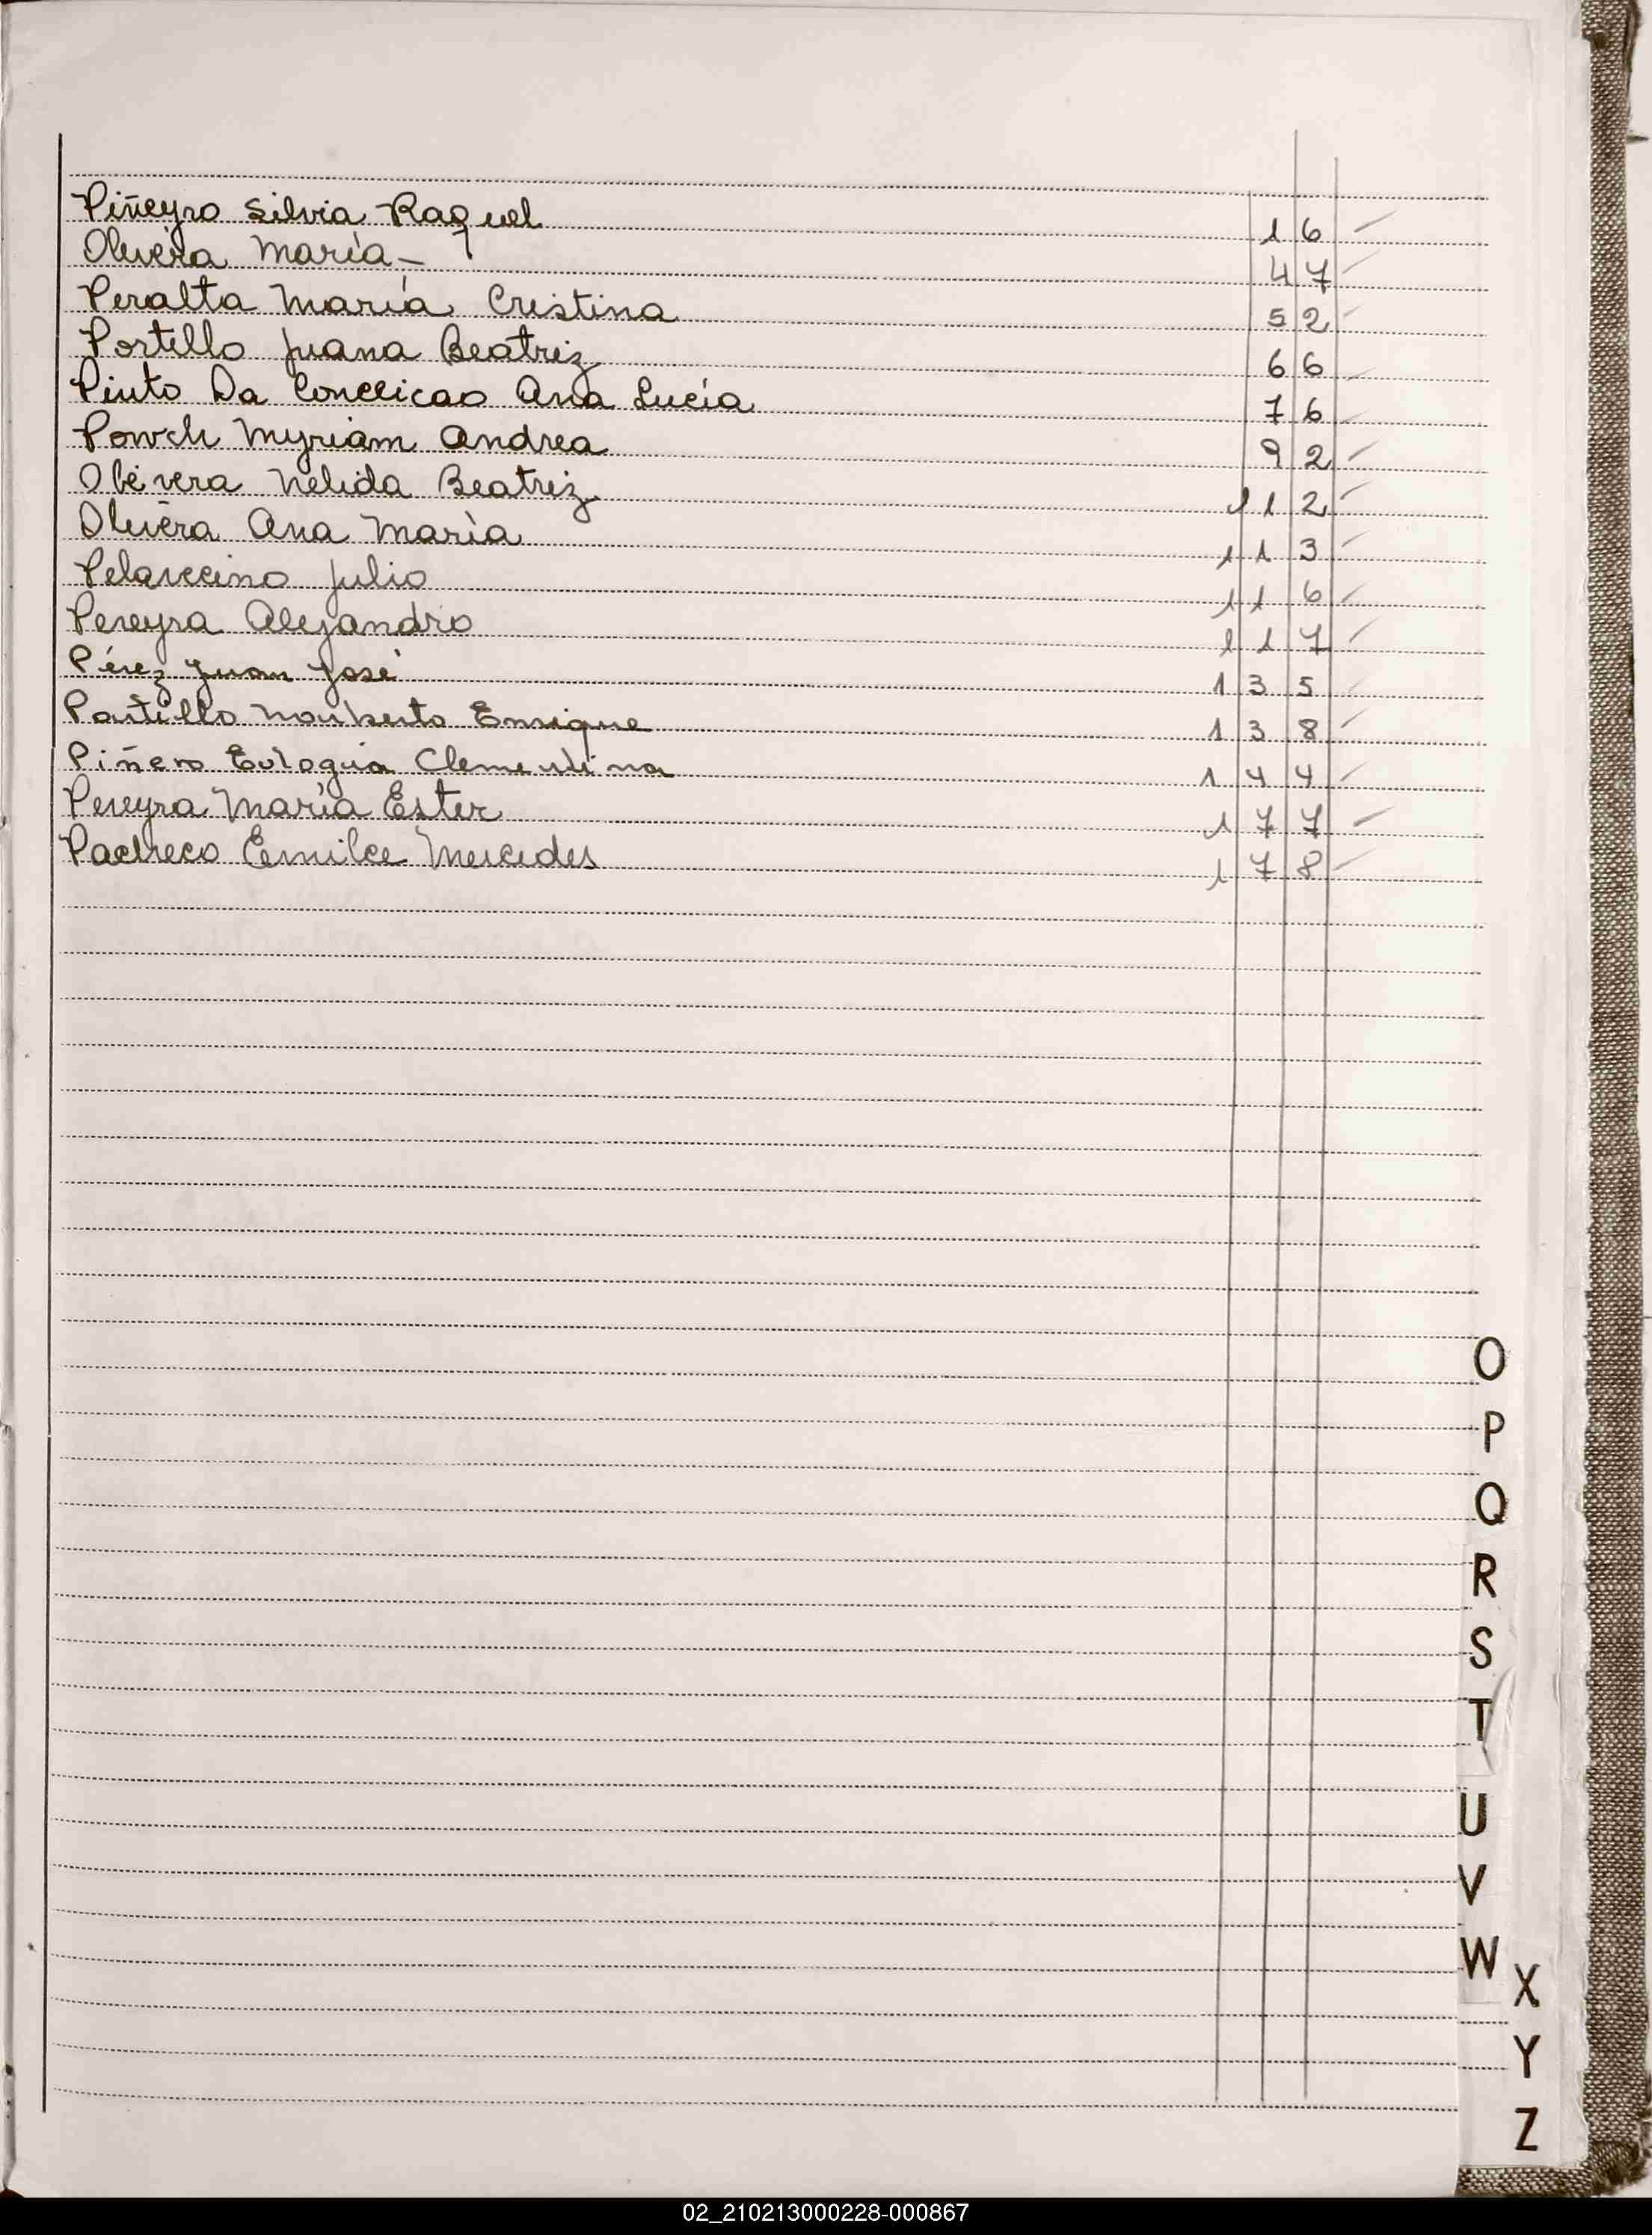 Piñeyro Silvia Raquel 16
Olivera María - 47
Peralta María Cristina 52
Portillo Juana Beatriz 66
Pinto Da Conceicao Ana Lucía 76
Powch Myriam Andrea 92
Olivera Nelida Beatriz 112
Olivera Ana María 113
Pelarecino Julio 116
Pereyra Alejandro 117
Pérez Juan José 135
Portillo Norberto Enrique 138
Piñero Eulogia Clementina 144
Pereyra María Ester 177
Pacheco Eemilce Mercedes 178
O
P
Q
R
S
T
U
V
W
X
Y
Z
02_210213000228-000867